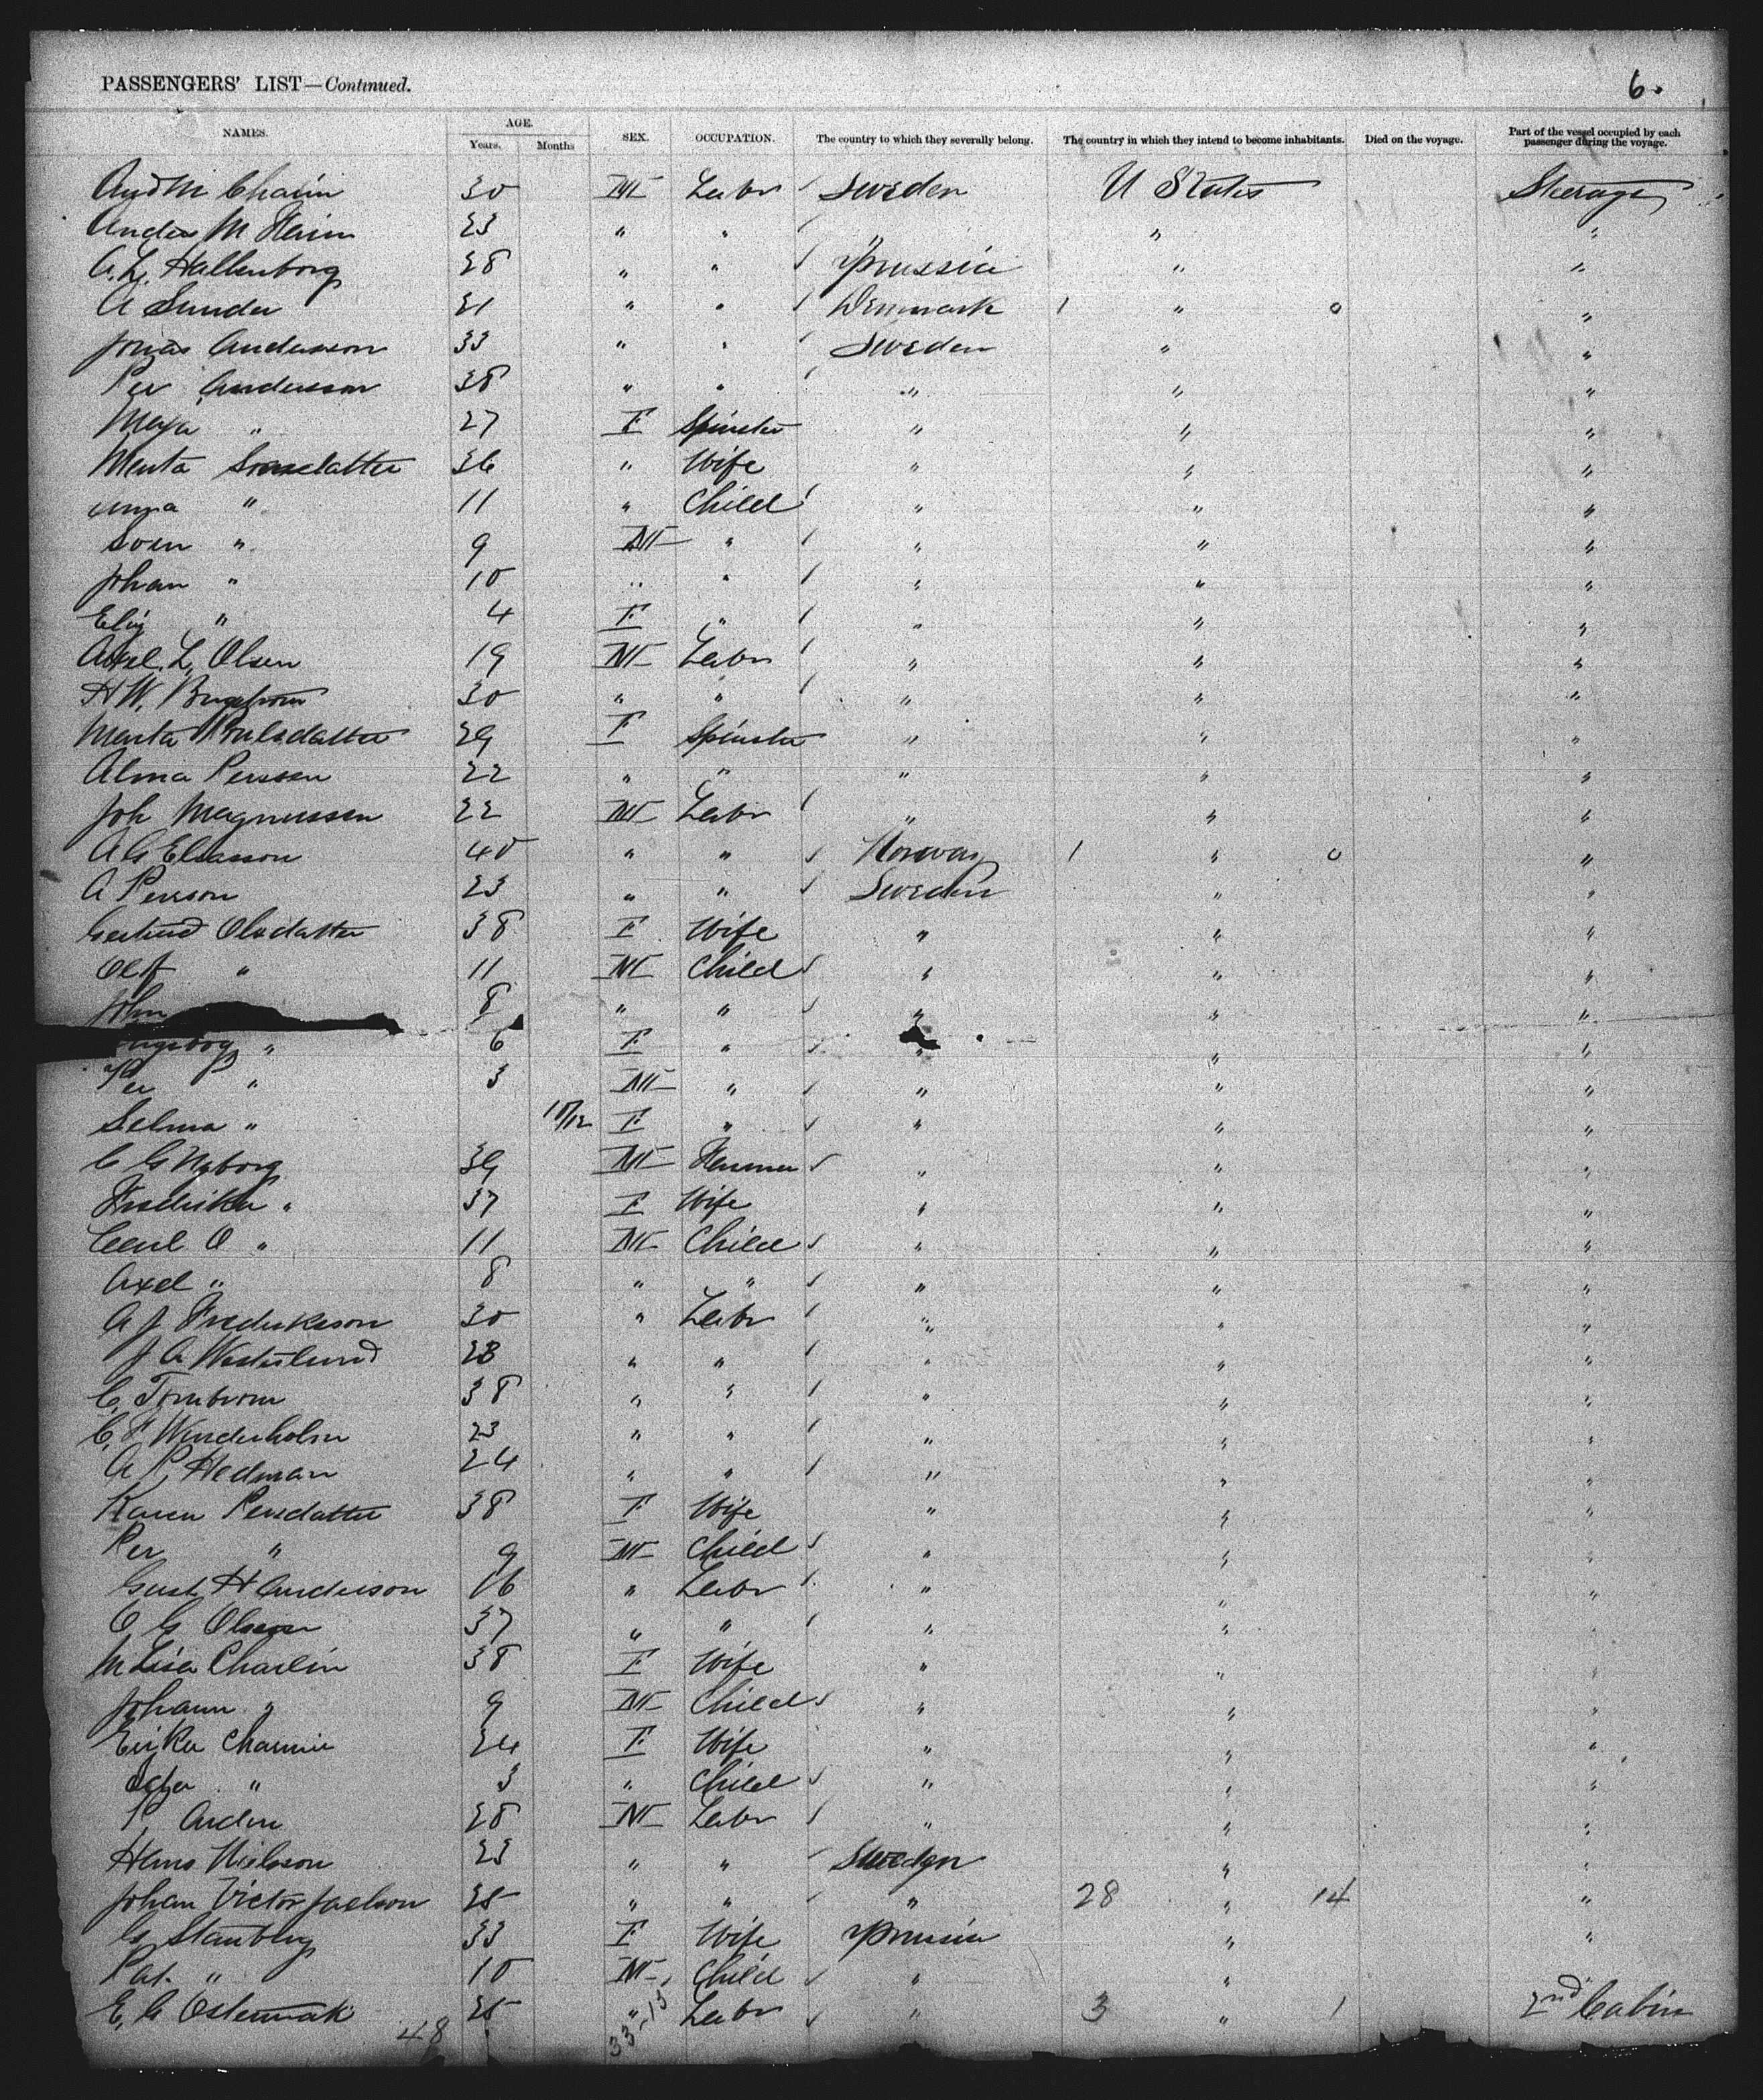 PASSENGERS' LIST—Continued. 6.
NAMES. AGE. SEX. OCCUPATION. The country to which they severally belong. The country in which they intend to become inhabitants. Died on the voyage. Part of the vessel occupied by each passenger during the voyage.
Years. Months
30 M Labr Sweden U States Steerage
Anders M 23 " " " " "
A. L. Hallenborg 28 " " Prussia " "
A Sunder 21 " " Denmark 1 " 0 "
Jonas Anderson 33 " " Sweden " "
Per Andersson 38 " " " " "
Maja " 27 F Spinster " " "
Merta 36 " Wife " " "
Anna " 11 " Child " " "
Sven " 9 M " " " "
Johan " 10 " " " " "
" 4 F " " " "
Axel. L. Olsen 19 M Labr " " "
H W. 30 " " " " "
Merta 29 F Spinster " " "
Alma Persson 22 " " " " "
Joh Magnussen 22 M Labr " " "
A G Eliasson 40 " " Norway 1 " 0 "
A Persson 23 " " Sweden " "
Gertrud Olsdatter 38 F Wife " " "
Olof " 11 M Child " " "
John 8 " " " " "
" 6 F " " " "
Per " 3 M " " " "
Selma " 10/12 F " " " "
C G Nyborg 39 M Farmer " " "
Fredrika " 37 F Wife " " "
Carl O " 11 M Child " " "
Axel " 8 " " " " "
A J Fredrikson 30 " Labr " " "
J A Westerlund 23 " " " " "
C. Tornbrom 38 " " " " "
C. F Wenderholm 23 " " " " "
A P. Hedman 24 " " " " "
Karen Persdatter 38 F Wife " " "
Per " 9 M Child " " "
Gust H Anderson 16 " Labr " " "
O G Olsson 37 " " " " "
M Lisa Charlin 38 F Wife " " "
Johann " 9 M Child " " "
Erika 24 F Wife " " "
" 3 " Child " " "
P. 28 M Labr " " "
Hans Nielsson 23 " " Sweden " "
Johan Victor 25 " " " 28 " 14 "
33 F Wife Prussia " "
" 10 M Child " " "
E. G Ostermak 25 " Labr " 3 " 1 2nd Cabin
48 33-15